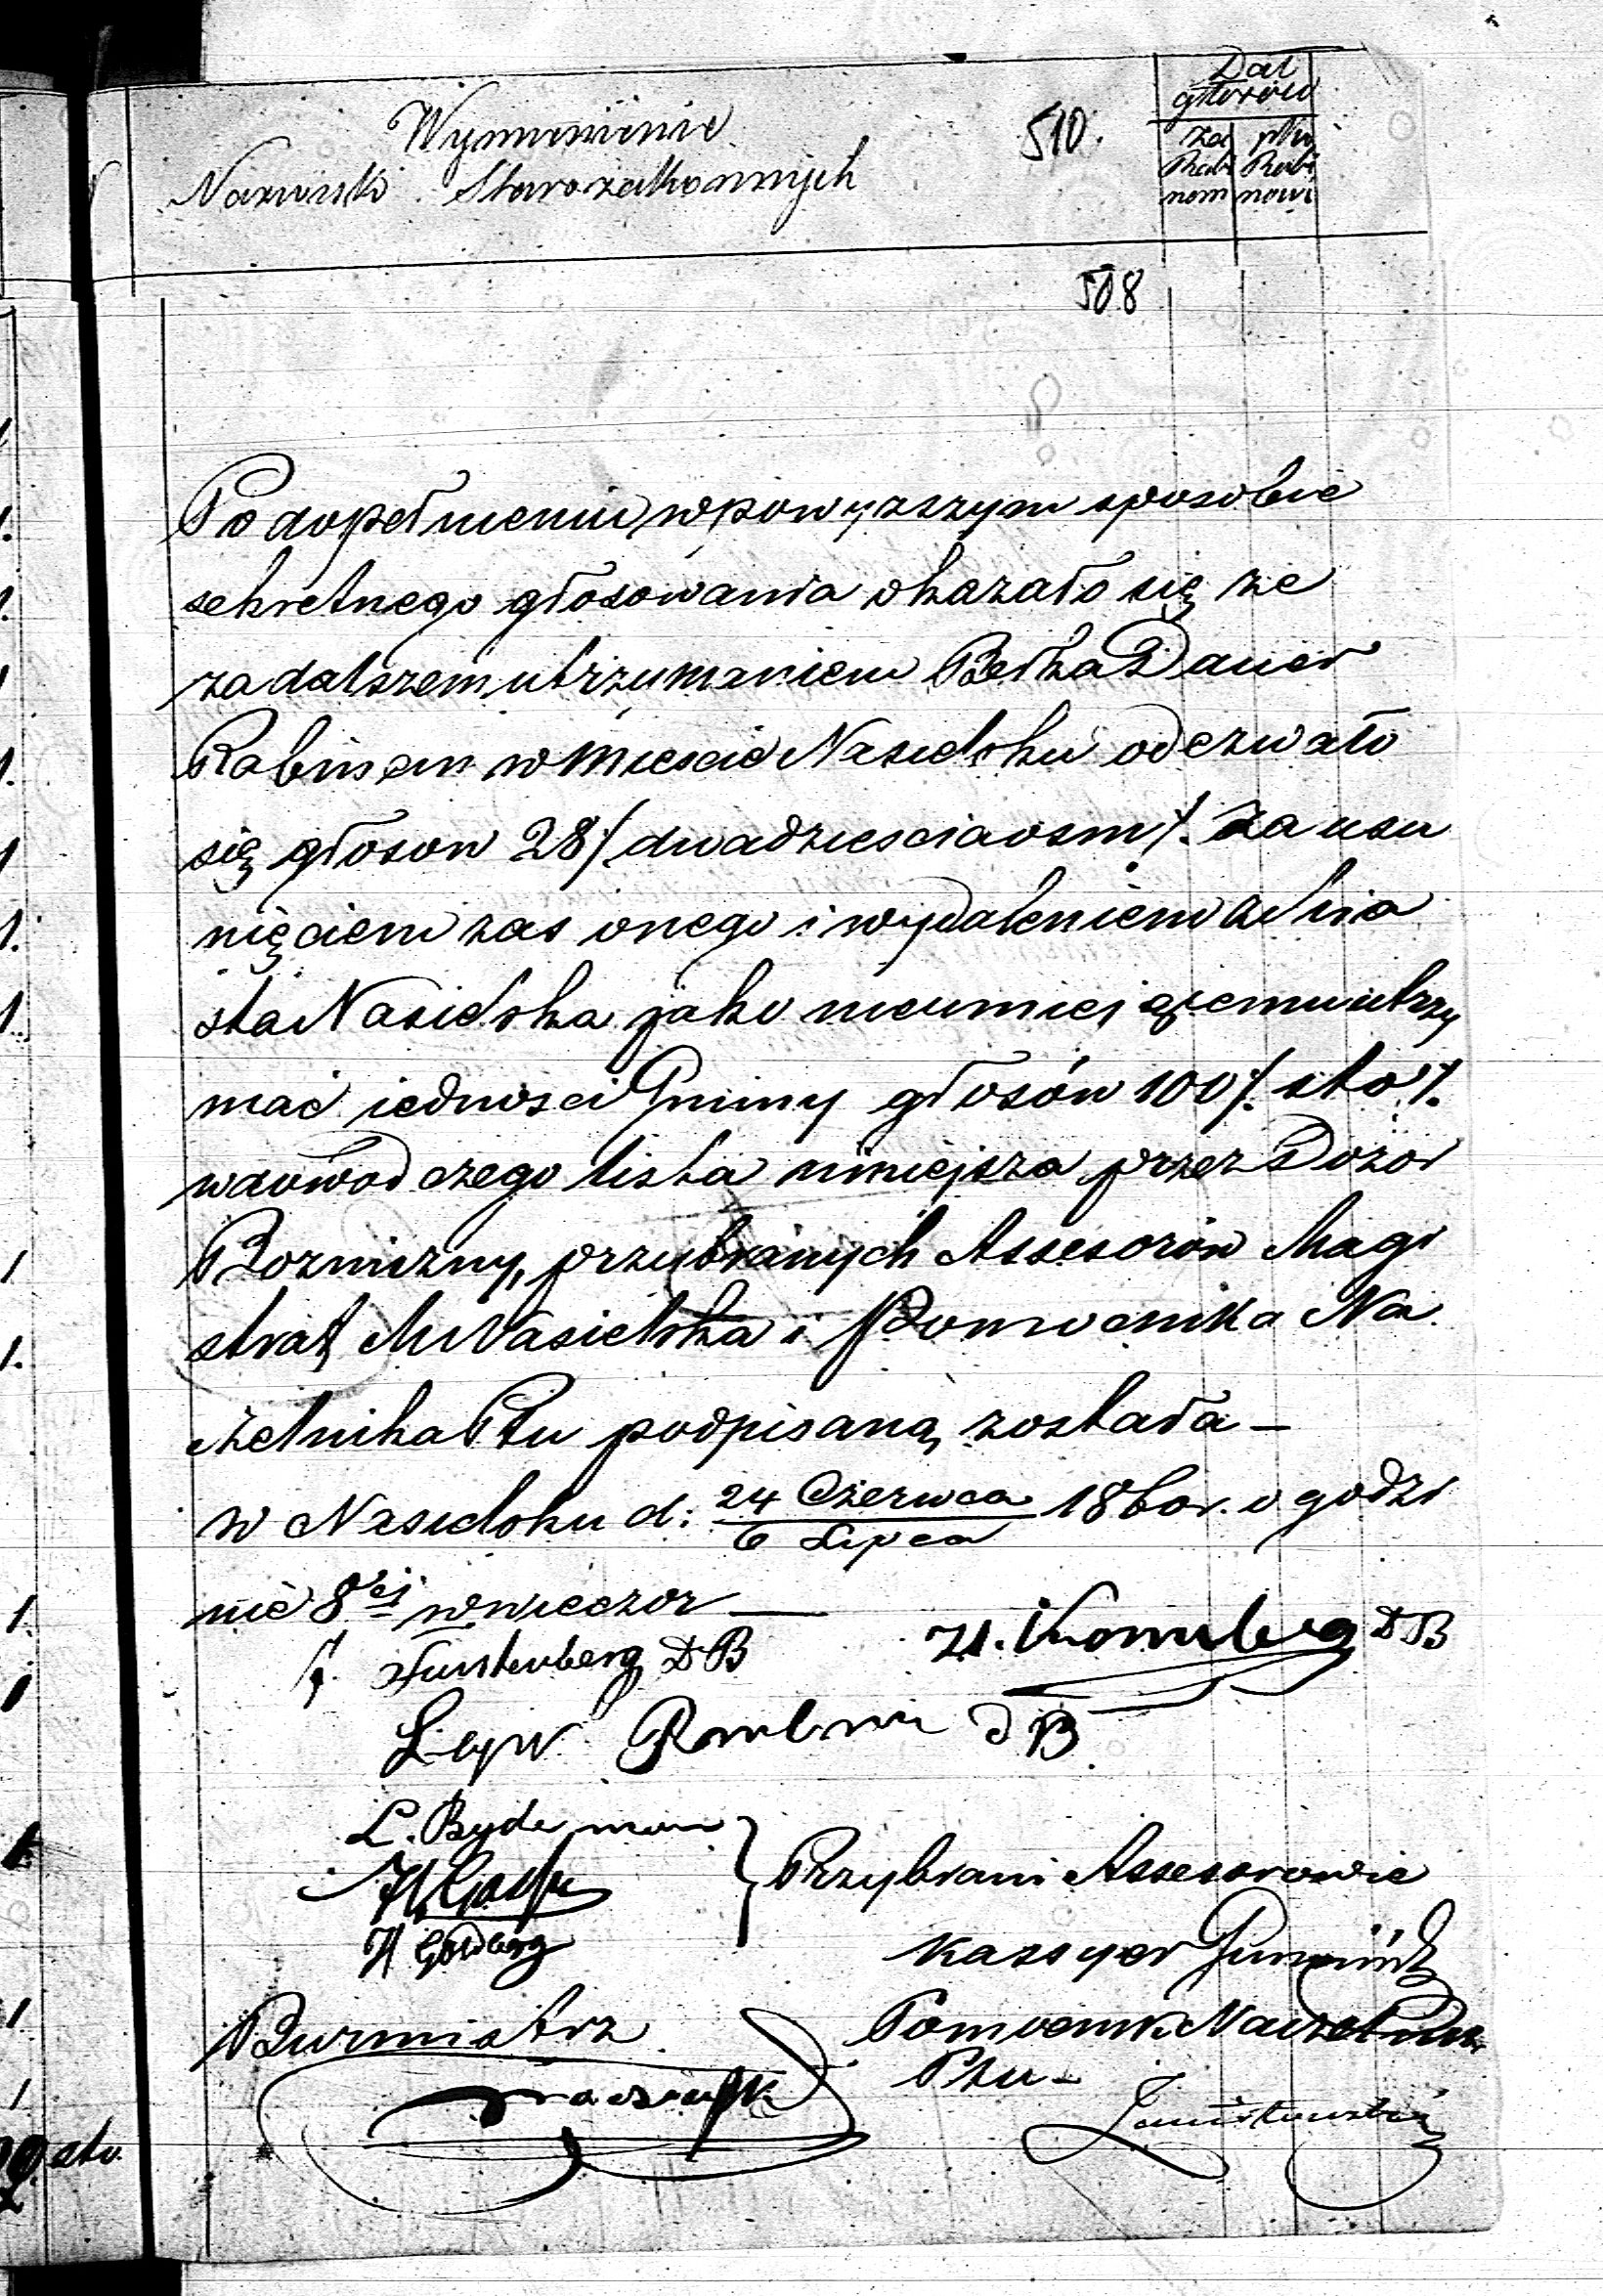 Wymienienie
Nazwisk Starozakonnych
510.
Dał
głosów
za
Rabi
nem
ptko
Rabi
nowi
508
Po dopełnieniu w powyzszym sposobie
sekretnego głosowania okazało się ze
za dalszem utrzymaniem Berka Dauer
Rabinem w miescie Nasielsku odezwało
się głosow 28 /. dwadziescia osm /. Za usu
nięciem zas onego i wydaleniem z Mia
sta Nasielska jako nieumiejącemu utrzy
mać iednosci Gminy głosów 100 /. sto /.
w dowod czego lista niniejsza przez Dozor
Bozniczny, przybranych Assesorów Magi
strat M Nasielska i Pomocnika Na
czelnika Ptu podpisaną została –
w Nasielsku d: 24 Czerwca / 6 Lipca 186o r. o godzi
nie 8ei w wieczor —
f. Furstenberg DB
H. Kornberg DB
DB
L. Byderman
H Goldberg
Przybrani Assesorowie
Kassyer
Burmistrz
Pomocnik Naczelnika
Ptu –
sto.